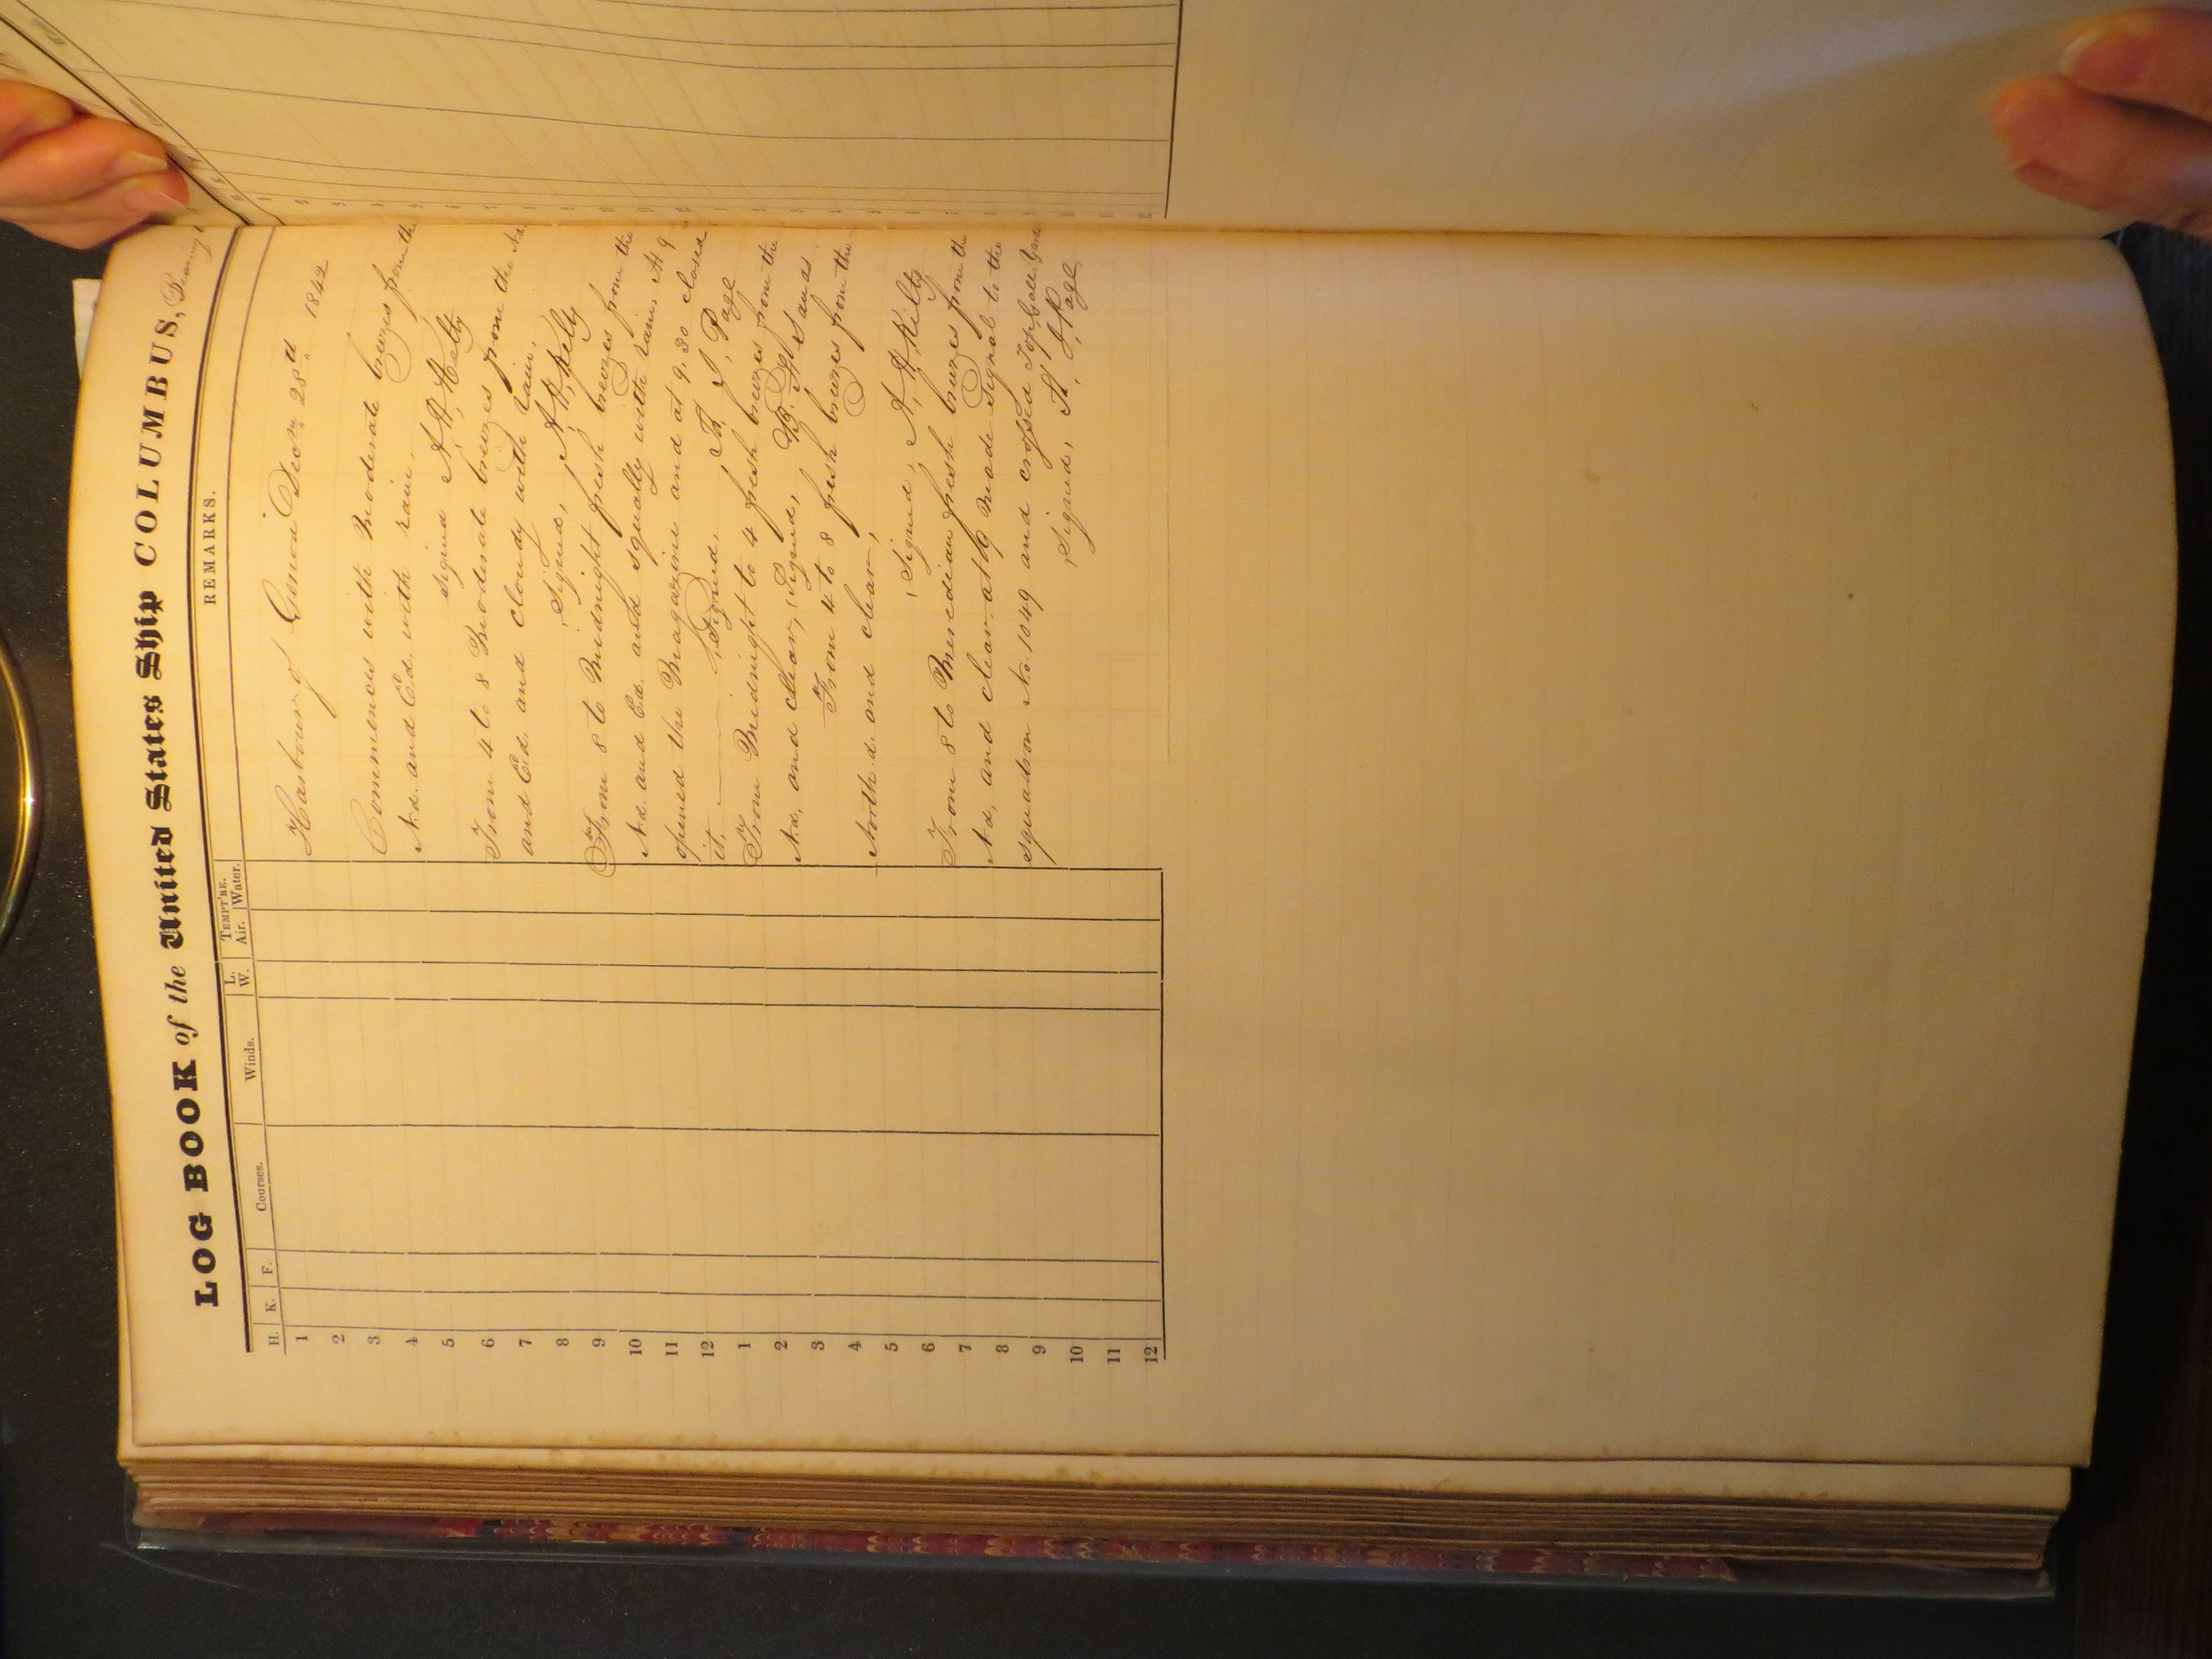 LOG BOOK of the United States Ship COLUMBUS, Bearing
H. K. F. Courses. Winds. L. W. TEMPT'RE. Air. Water. REMARKS.
Harbour of Genoa Decem 28th 1842
Commences with Moderate breezes from the
Nd. and Ed. with rain,
signed A, H, Kelty
From 4 to 8 Moderate breezes from the Nd
and Ed. and cloudy with rain,
Signed, A, H, Kelty
From 8 to Midnight fresh breezes from the
Nd. and Ed. and squally with rain. At 9
opened the Magazine and at 9.30 closed
it. Signed, Th, J, Page
From Midnight to 4 fresh breezes from the
Nd. and clear, Signed, B. F. Sands
From 4 to 8 fresh breezes from the
Northd. and clear,
Signed, A, H, Kilty
From 8 to Meredian fresh breezes from th
Nd, and clear. at 9 Made Signal to the
squadron No. 1049 and crossed Topgall. Yards
Signed, Th, J, Page
1
2
3
4
5
6
7
8
9
10
11
12
1
2
3
4
5
6
7
8
9
10
11
12